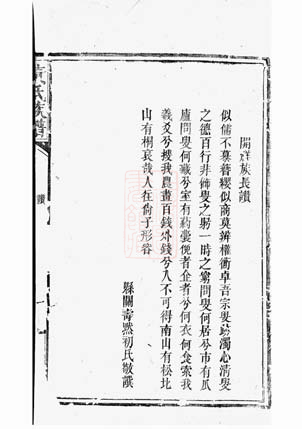 開祥族長讚
似儒不慕簪纓似商莫辨權衡卓吾宗叟迹濁心清叟
之德百行非飾叟之躬一時之窮問叟何居兮市有瓜
廬問叟何藏兮室有藥囊優者企者兮何衣何食索我
羲爻兮授我農畫百錢外錢兮人不可得南山有松北
山有桐哀哉人在倘子形容
縣關壽熙初氏敬讚
黃氏族譜
讚